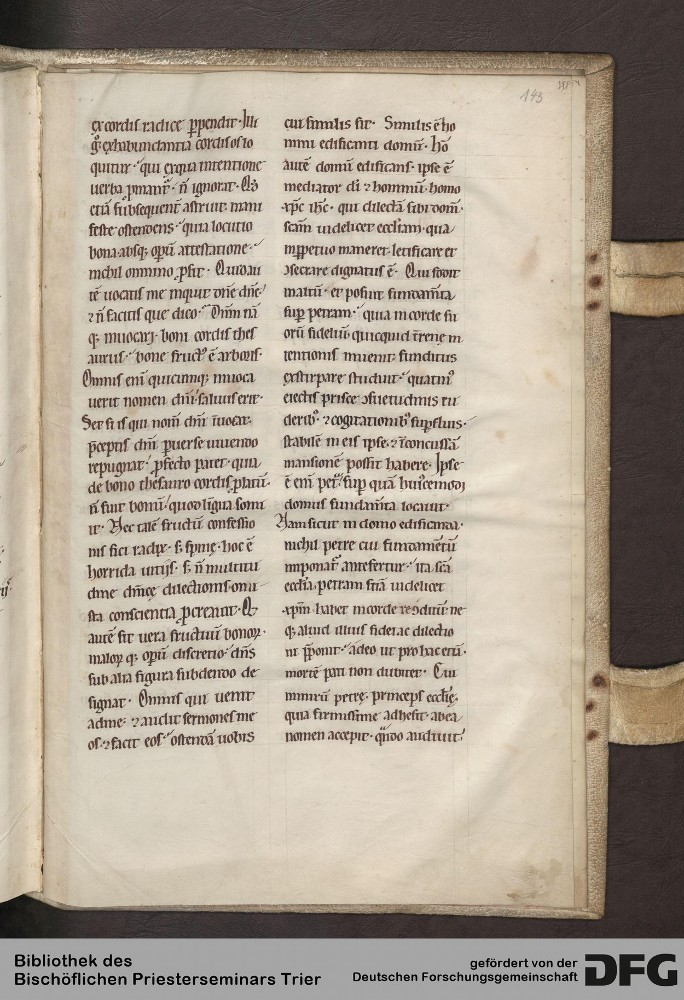 143
ex cordis radice p̱pendit. Illi
g̊ exhabundantia cordis os lo
quitur. qui ex qua intentione
verba ꝓmant᷑. ñ ignorat. Qđ
etiā subsequent᷑ astruit. mani
feste ostendens. quia locutio
bona absq; opeꝝ attestatione.
nichil omnino ꝓsit. Quid au
tē uocatis me inquit dñe dñe.
⁊ ñ facitis que dico. Dñm nā
q; inuocari. boni cordis thes
aurus. bone fruct᷒ ē arboris.
Omnis eni quicumq; inuoca
uerit nomen dñi saluus erit.
Set si is qui nom̄ dñi īuocat.
p̄ceptis dñi ꝑuerse uiuendo
repugnat. ꝓfecto patet. quia
de bono thesauro cordis ꝓlatū.
ñ sunt bonū. quod lingua sonu
it. Nec talē fructū confessio
nis fici radix. s; spinę. hoc ē
horrida uitijs. s; ñ multitu
dine dn̄icę dilectionis onu
sta conscientia ꝓcreauit. Q̄
autē sit uera fructuū bonoꝝ.
maloꝝ q; opeꝝ discretio. dñs
sub alia figura subdendo de
signat. Omnis qui uenit
ad me. ⁊ audit sermones me
os. ⁊ facit eos. ostendā uobis
cui similis sit. Similis ē ho
mini edificanti domū. Hō
autē domū edificans. ipse ē
mediator dī ⁊ hominū. homo
xp̄c ih̄c. qui dilectā sibi dom̄.
scām uidelicet eccl̄iam. qua
in ꝑpetuo maneret. letificare et
ꝯsecrare dignatus ē. Qui fodit
in altū. et posuit fundam̄ta
sup̱ petram. quia in corde su
oꝝ fideliū. quicquid t̄renę in
tentionis inuenit. funditus
exstirpare studuit. quatin᷒
eiectis prisce ꝯsuetudinis ru
derib᷒. ⁊ cogitationib᷒ sup̱fluis.
stabilē in eis ipse. ⁊ īconcussā
mansionē possit habere. Ipse
ē eni pet̄. sup̱ quā huiꝰcemodi
domus fundam̄ta locauit.
Nam sicut in domo edificanda.
nichil petre cui fundam̄tū
imponat᷑ antefertur. ita scā
eccl̄ia. petram suā uidelicet
xp̄m habet in corde recōditū. ne
q; aliud illius fidei ac dilectio
ni p̄ponit. adeo ut pro hac etiā.
mortē pati non dubitet. Cui
mirirū petrę. princeps eccl̄ię.
quia firmissime adhesit. ab ea
nomen accepit. qn̄do audiuit.
Bibliothek des
Bischöflichen Priesterseminars Trier
gefördert von der
Deutschen Forschungsgemeinschaft
DFG